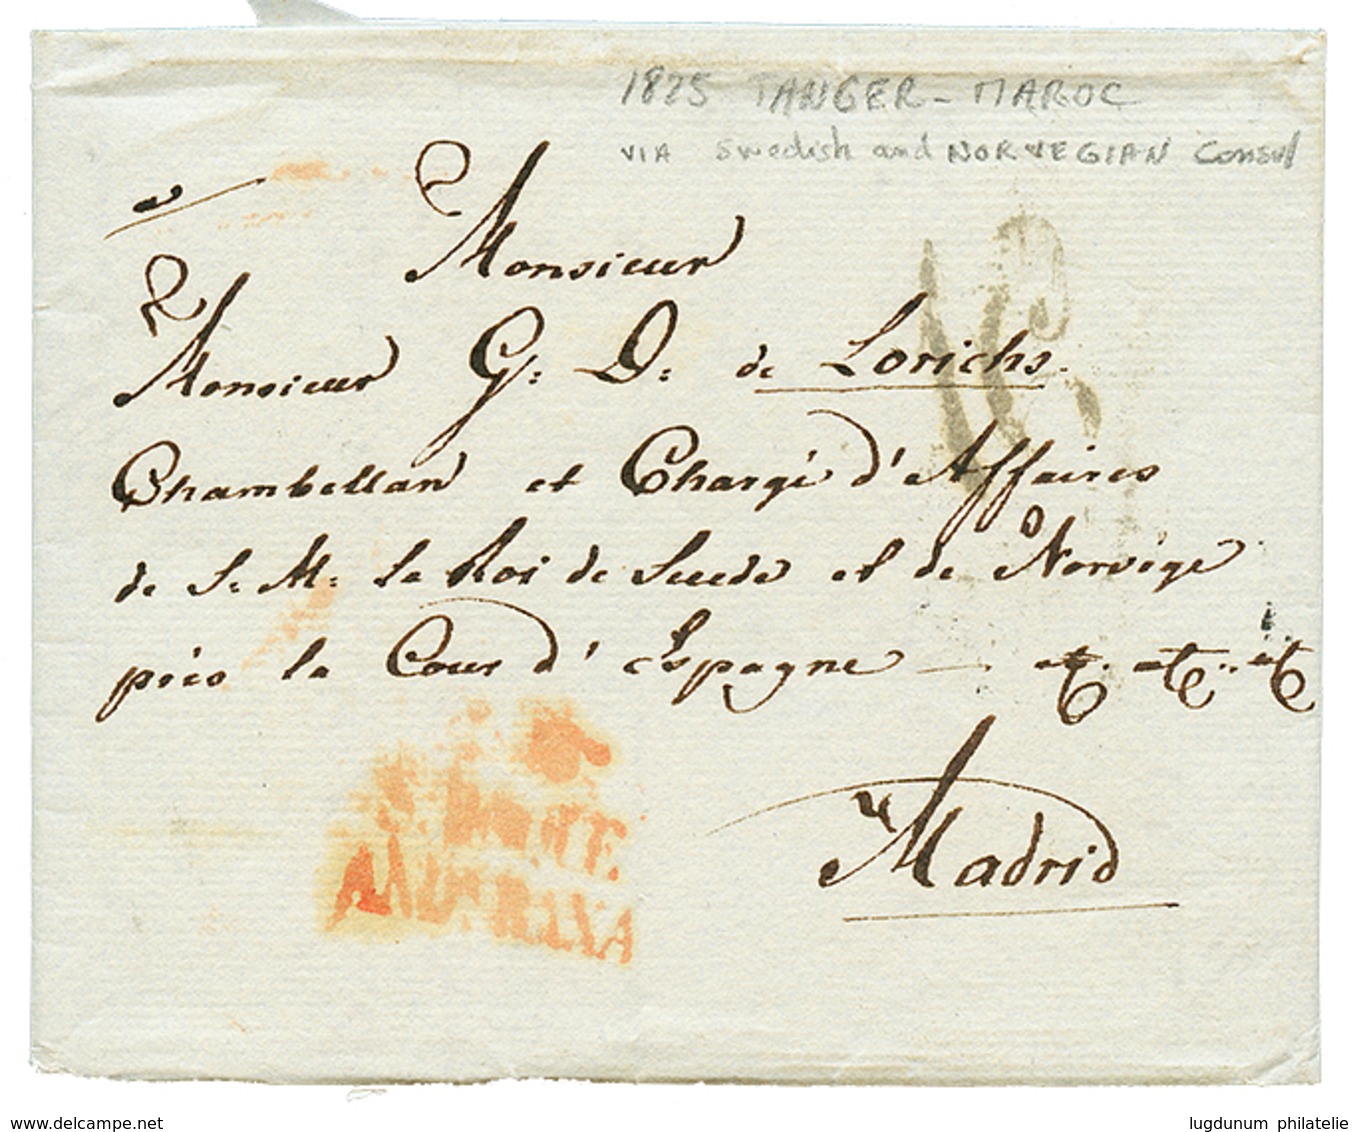 1825 TANGER - MAROC
VIA Swedish and NORWEGIAN Consul
Monsieur
Monsieur G: D: de Lorichs.
Chambellan et Chargé d'Affaires
de S. M: le Roi de Suede et de Norvège
près la Cour d'Espagne — etc. etc.. etc
à Madrid
S. ROQUE
ANDA. BAXA
www.delcampe.net
lugdunum philatelie